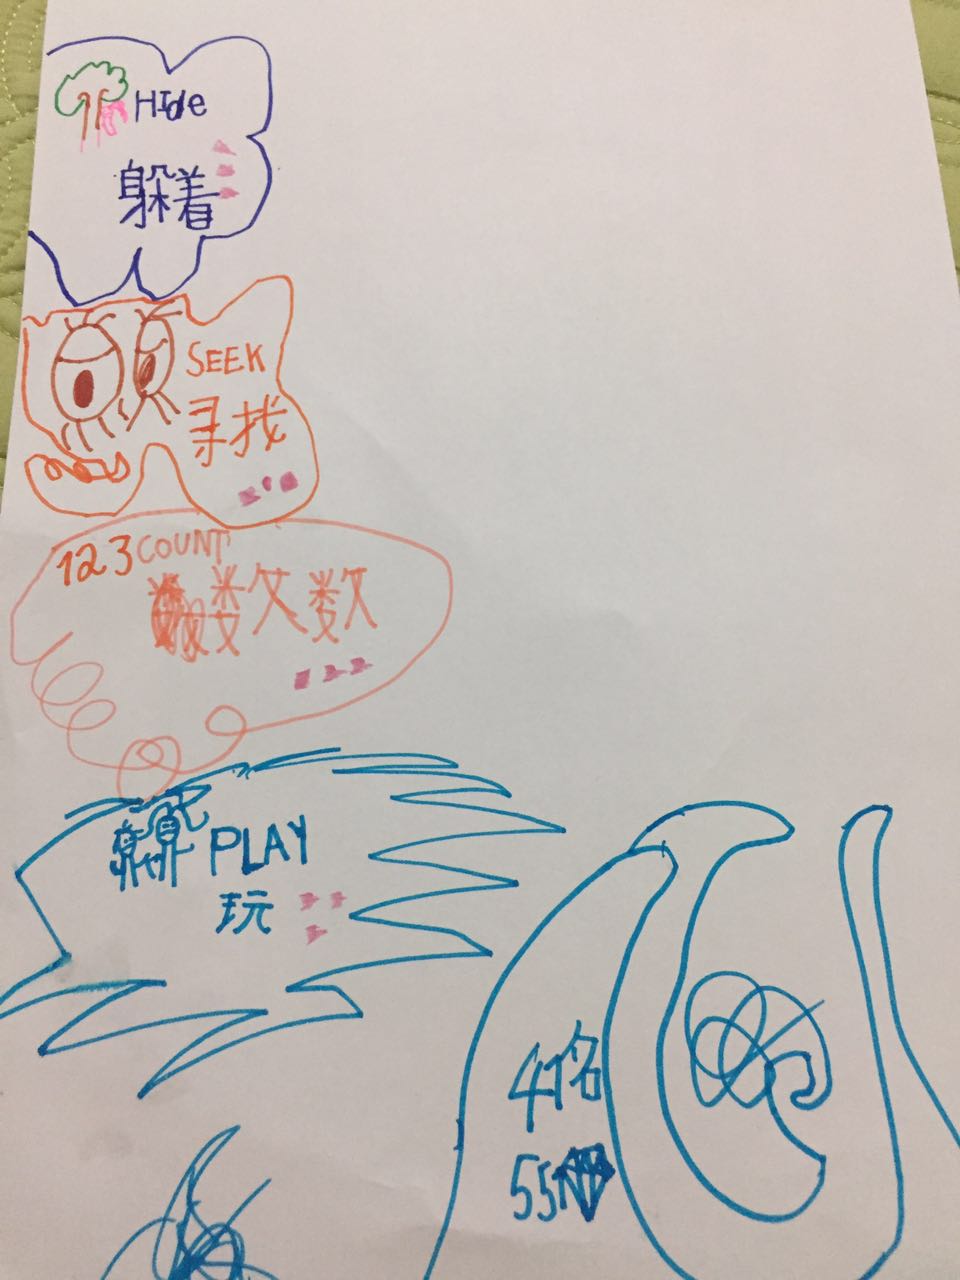 HIde
躲着
SEEK
寻找
123 COUNT
数
PLAY
玩
41名
55